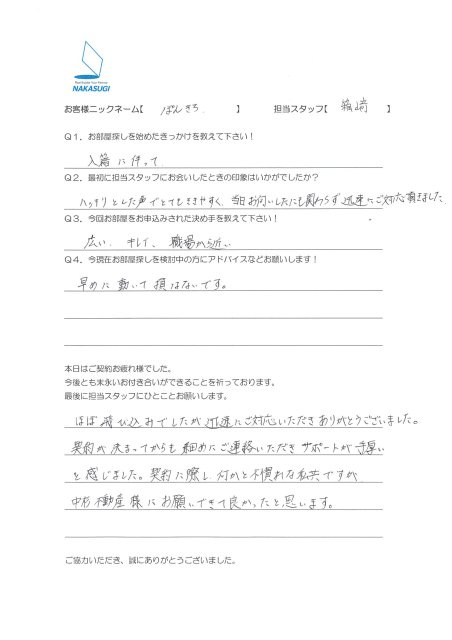 NAKASUGI
お客様ニックネーム【 ぽんきち 】 担当スタッフ【 箱崎 】
Q1．お部屋探しを始めたきっかけを教えて下さい！
入籍に伴って
Q2．最初に担当スタッフにお会いしたときの印象はいかがでしたか？
ハッキリとした声でとてもききやすく、当日お伺いしたにも関わらず迅速にご対応頂きました
Q3．今回お部屋をお申込みされた決め手を教えて下さい！
広い、キレイ、職場から近い
Q4．今現在お部屋探しを検討中の方にアドバイスなどお願いします！
早めに動いて損はないです。
本日はご契約お疲れ様でした。
今後とも末永いお付き合いができることを祈っております。
最後に担当スタッフにひとことお願いします。
ほぼ飛び込みでしたが迅速にご対応いただきありがとうございました。
契約が決まってからも細めにご連絡いただきサポートが手厚い
と感じました。契約に際し何かと不慣れな私共ですが
中杉不動産様にお願いできて良かったと思います。
ご協力いただき、誠にありがとうございました。